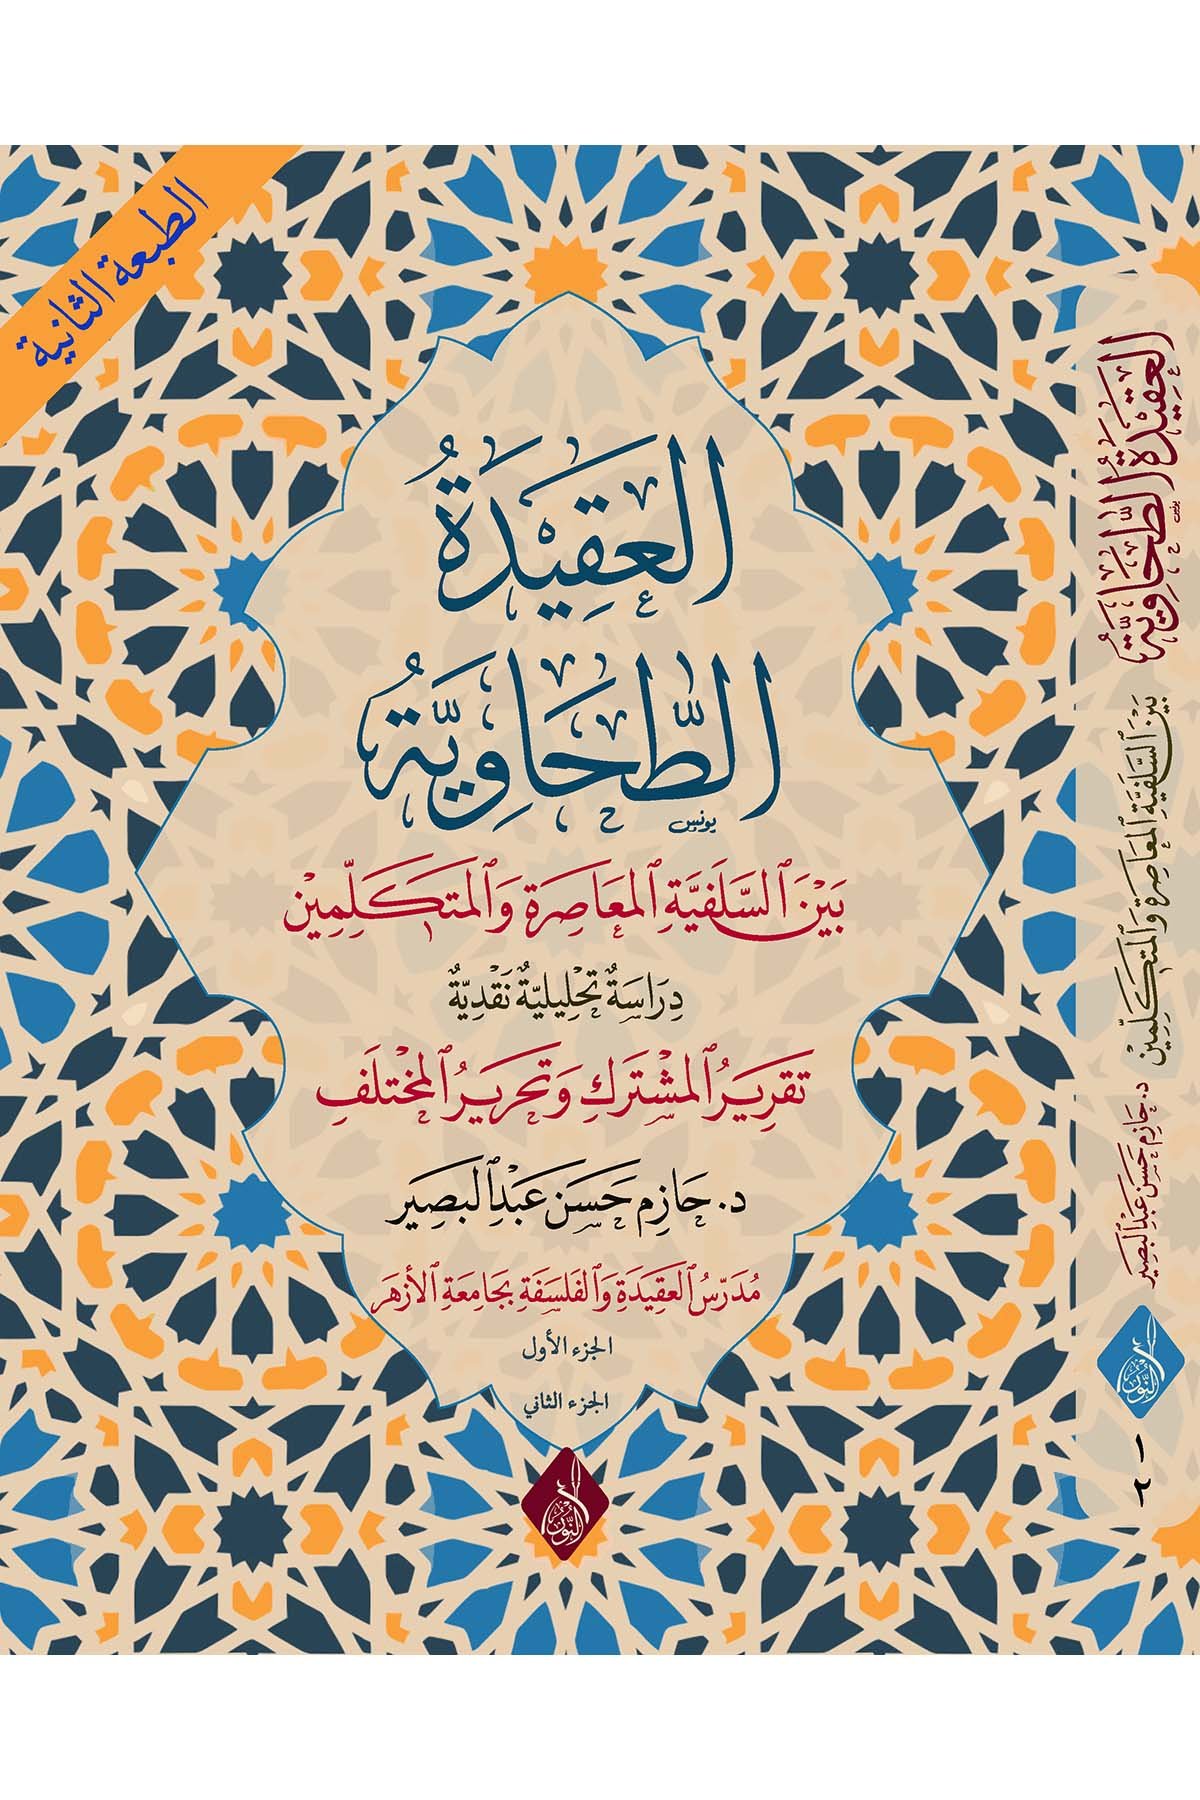 الطبعة الثانية
العَقِيْدَةُ
الطَّحَاوِيَّةُ
يونس
بَيْنَ السَّلَفِيَّةِ المُعَاصِرَةِ وَالمُتَكَلِّمِيْنَ
دِرَاسَةٌ تَحْلِيلِيَّةٌ نَقْدِيَّةٌ
تَقْرِيرُ المُشْتَرَكِ وَتَحْرِيرُ المُخْتَلَفِ
د. حَازِم حَسَن عَبْدُ البَصِير
مُدَرِّسُ العَقِيدَةِ وَالفَلسَفَةِ بِجَامِعَةِ الأَزْهَر
الجزء الأول
الجزء الثاني
النُّور
العَقِيْدَةُ الطَّحَاوِيَّةُ
يونس
بَيْنَ السَّلَفِيَّةِ المُعَاصِرَةِ وَالمُتَكَلِّمِيْنَ
د. حَازِم حَسَن عَبْدُ البَصِير
النُّور
١-٢